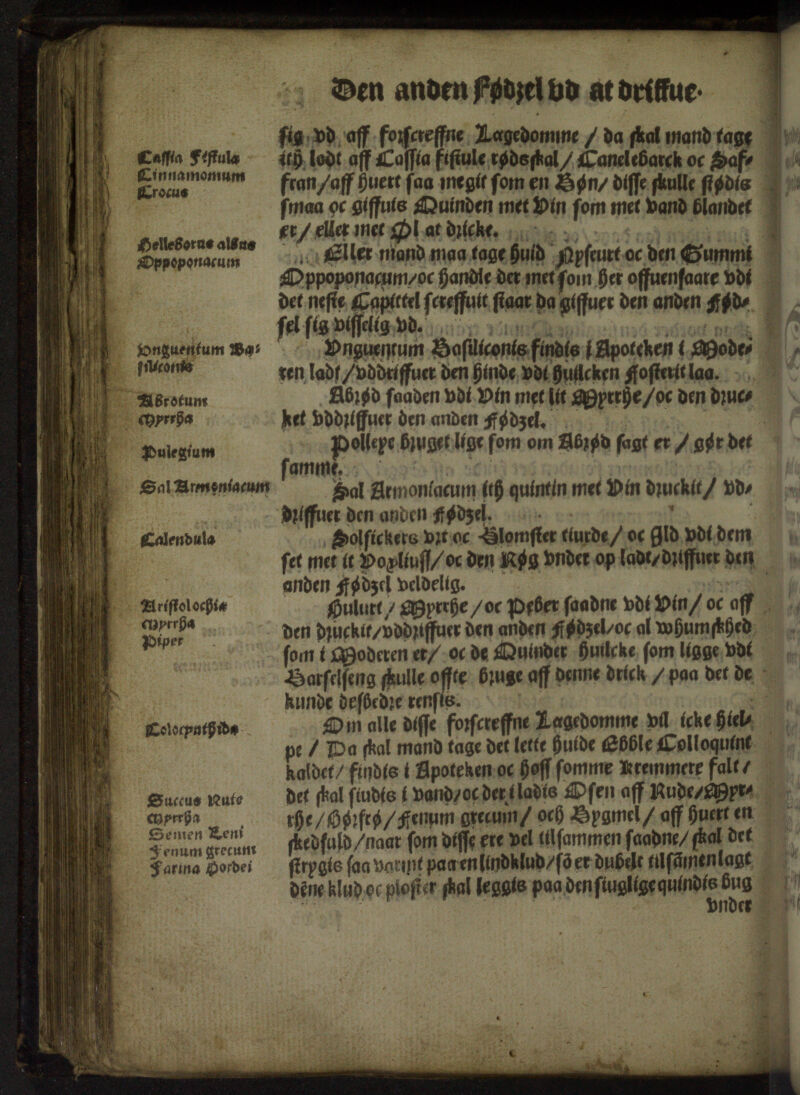 Den anden Fødzel vd at driffue.
sig vd aff forscreffne Lægedomme / da skal mand tage
Cassia Fistula
itħ lodt aff Cassia fistule rødeskal / Canelebarck oc Saf=
Cinnamomum
fran / aff huert saa megit som en Bøn / disse skulle stødis
Crocus
smaa oc giffuis Quinden met Vin som met vand blandet
er / eller met Øl at dricke.
Helleborus albus
Eller mand maa tage huid Nyseurt oc den Gummi
Oppoponacum
Oppoponacum / oc handle der met som her offuenfaare vdi
det neste Capittel screffuit staar da giffuer den anden Fød=
sel sig visselig vd.
Vnguentum Ba=
Vnguentum Basiliconis findis i Apoteken i Mode=
siliconis
ren ladt / vddriffuer den hinde vdi huilcken Fosterit laa.
Abrotum
Abrød saaden vdi Vin met lit Myrrhe / oc den druc=
Myrrha
ket vddriffuer den anden Fødzel.
Pulegium
Polleye bruget lige som om Abrød sagt er / gør det
samme.
Sal Armoniacum
Sal Armoniacum itħ quintin met Vin druckit / vd=
driffuer den anden Fødzel.
Calendula
Solsickers vrt oc Blomster tiurde / oc Ild vdi dem
set met it Voxliuß / oc den Røg vnder op ladt / driffuer den
anden Fødzel veldelig.
Aristolochia
Hulurt / Myrrhe / oc Peber saadne vdi Vin / oc aff
Myrrha
den druckit / vddriffuer den anden Fødzel / oc al whumskhed
Piper
som i Moderen er / oc de Quinder huilcke som ligge vdi
Barselseng skulle offte bruge aff denne drick / paa det de
kunde desbedre renses.
Colocynthida
Om alle disse forscreffne Lægedomme vil icke hiel=
pe / Da skal mand tage det lette huide Eble Colloquint
kaldet / findis i Apoteken oc hoff somme Kremmere falt /
Succus Rute
det skal siudis i vand / oc der i ladis Oxen aff Rude / Myr=
Myrrha
rhe / Hørfrø / Fenum grecum / och Bygmel / aff huert en
Semen Leni
skedfuld / naar som disse ere vel tilsammen saadne / skal det
Fenum grecum
strygis saa varmt paa en lindklud / så er dubelt tilsāmenlagt
Farina Hordei
dēne klud oc ploster skal leggis paa den siugligequindis bug
vnder